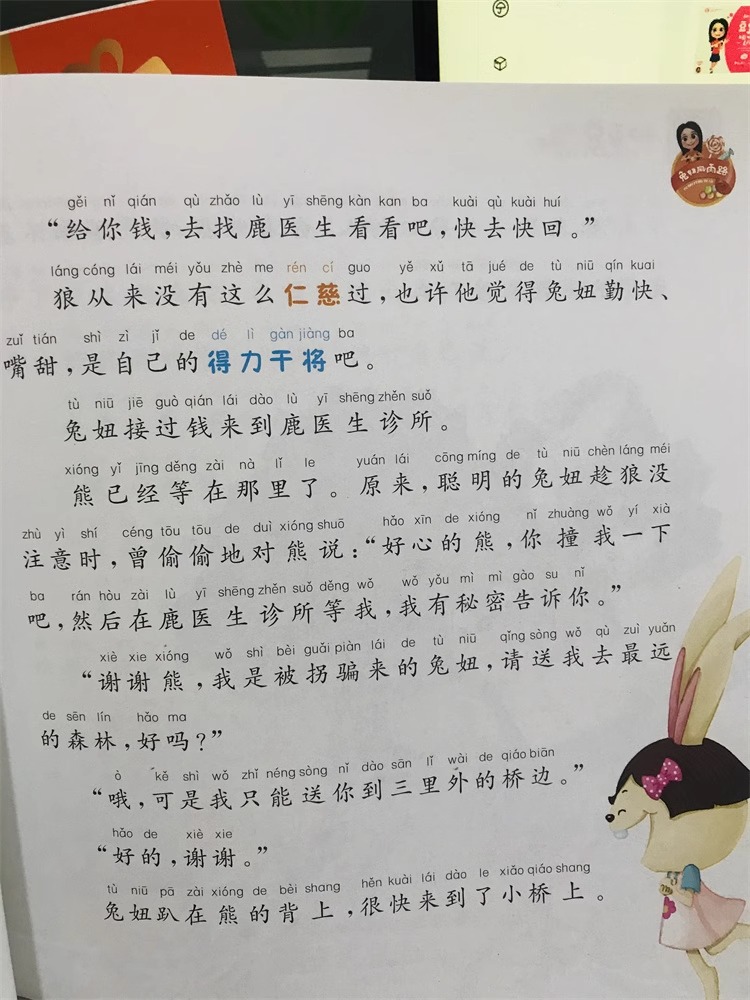 兔妞风雨路
gěi nǐ qián qù zhǎo lù yī shēng kàn kan ba kuài qù kuài huí
“给你钱，去找鹿医生看看吧，快去快回。”
láng cóng lái méi yǒu zhè me rén cí guo yě xǔ tā jué de tù niū qín kuai
狼从来没有这么仁慈过，也许他觉得兔妞勤快、
zuǐ tián shì zì jǐ de dé lì gàn jiàng ba
嘴甜，是自己的得力干将吧。
tù niū jiē guò qián lái dào lù yī shēng zhěn suǒ
兔妞接过钱来到鹿医生诊所。
xióng yǐ jīng děng zài nà lǐ le yuán lái cōng míng de tù niū chèn láng méi
熊已经等在那里了。原来，聪明的兔妞趁狼没
zhù yì shí céng tōu tōu de duì xióng shuō hǎo xīn de xióng nǐ zhuàng wǒ yí xià
注意时，曾偷偷地对熊说：“好心的熊，你撞我一下
ba rán hòu zài lù yī shēng zhěn suǒ děng wǒ wǒ yǒu mì mì gào su nǐ
吧，然后在鹿医生诊所等我，我有秘密告诉你。”
xiè xie xióng wǒ shì bèi guǎi piàn lái de tù niū qǐng sòng wǒ qù zuì yuǎn
“谢谢熊，我是被拐骗来的兔妞，请送我去最远
de sēn lín hǎo ma
的森林，好吗？”
ò kě shì wǒ zhǐ néng sòng nǐ dào sān lǐ wài de qiáo biān
“哦，可是我只能送你到三里外的桥边。”
hǎo de xiè xie
“好的，谢谢。”
tù niū pā zài xióng de bèi shang hěn kuài lái dào le xiǎo qiáo shang
兔妞趴在熊的背上，很快来到了小桥上。